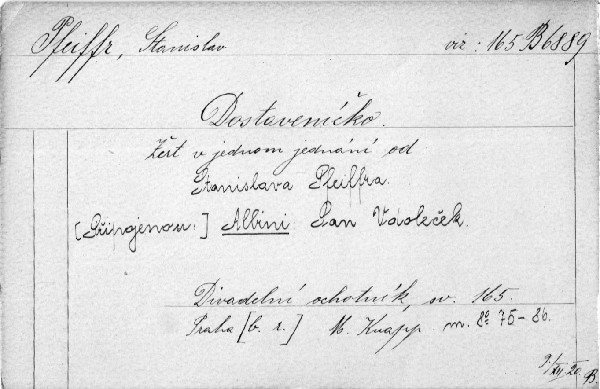 Pfeiffr, Stanislav viz: 165 B 6889
Dostaveníčko.
Žert v jednom jednání od
Stanislava Pfeiffra.
[Připojenou:] Albini Pan Vdoleček.
Divadelní ochotník, sv. 165.
Praha [b. r.] M. Knapp m. 8° 75-86.
9/XII. 20. B